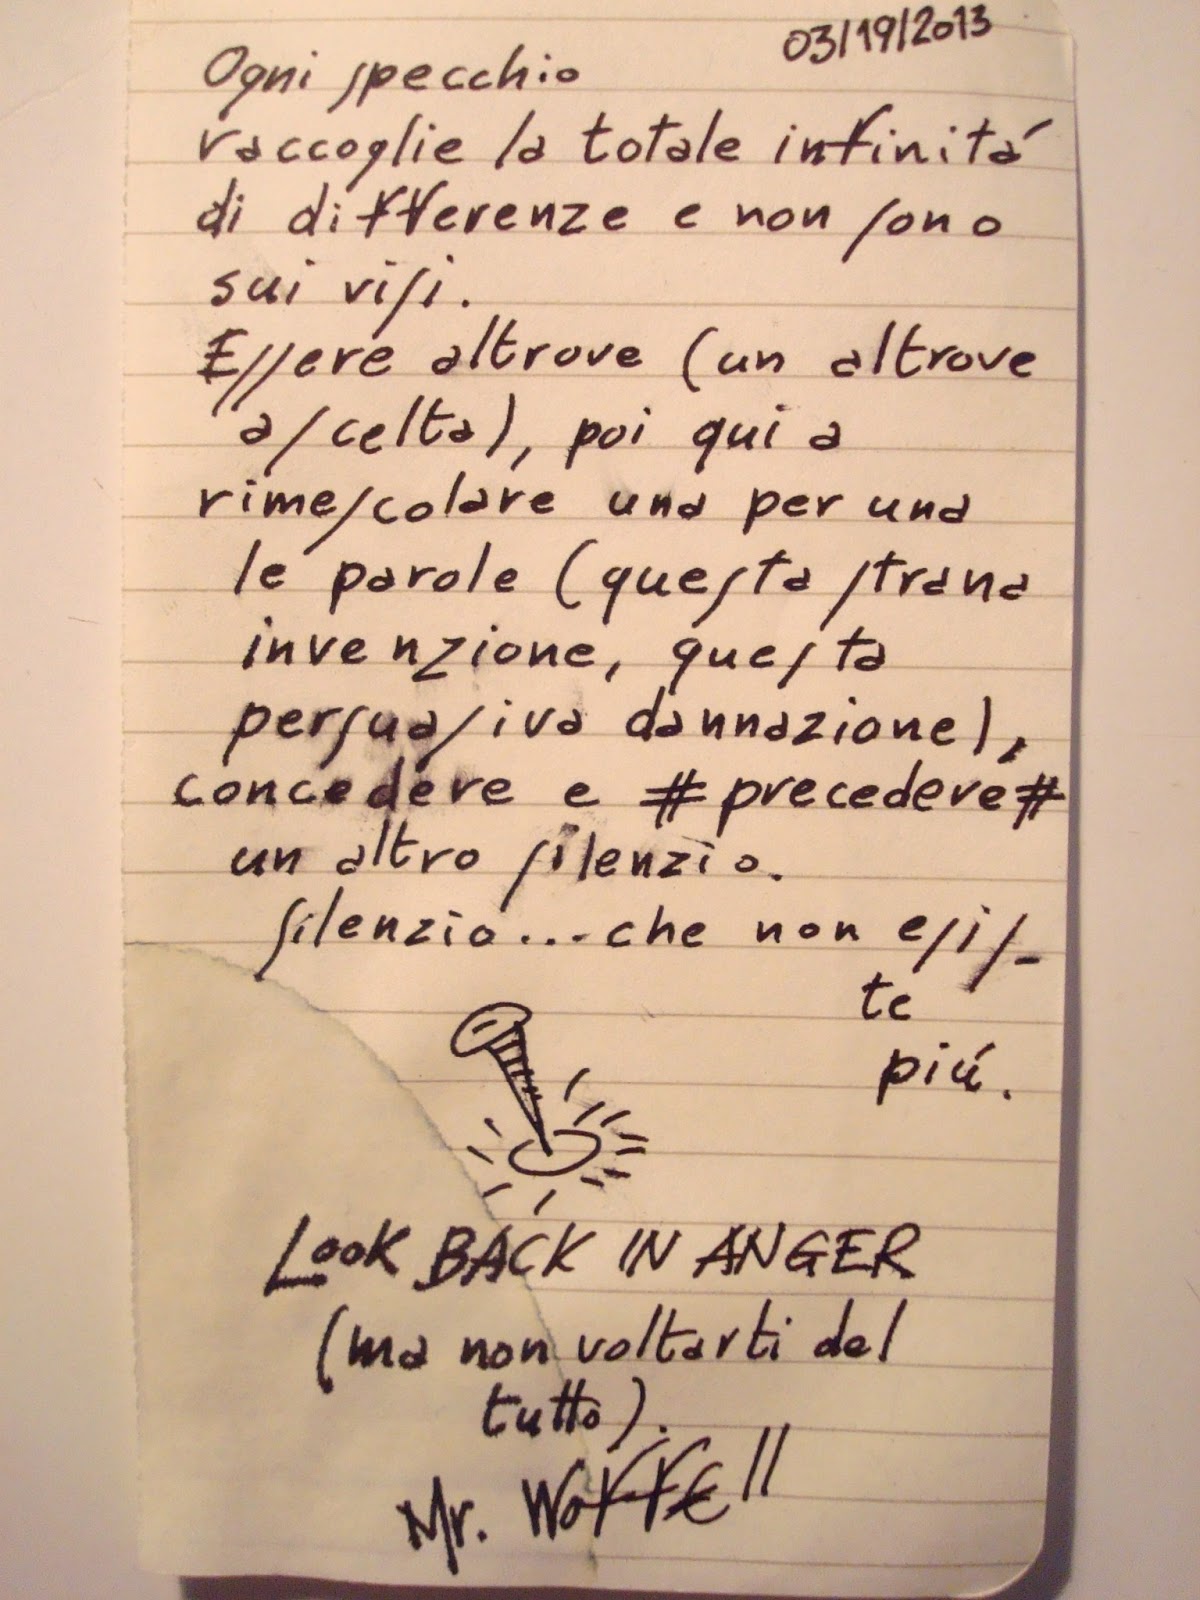 03/19/2013
Ogni specchio
raccoglie la totale infinitá
di differenze e non sono
sui visi.
Essere altrove (un altrove
a scelta), poi qui a
rimescolare una per una
le parole (questa strana
invenzione, questa
persuasiva dannazione),
concedere e #precedere#
un altro silenzio.
silenzio...che non esis-
te
piú.
Look BACK IN ANGER
(ma non voltarti del
tutto).
Mr.